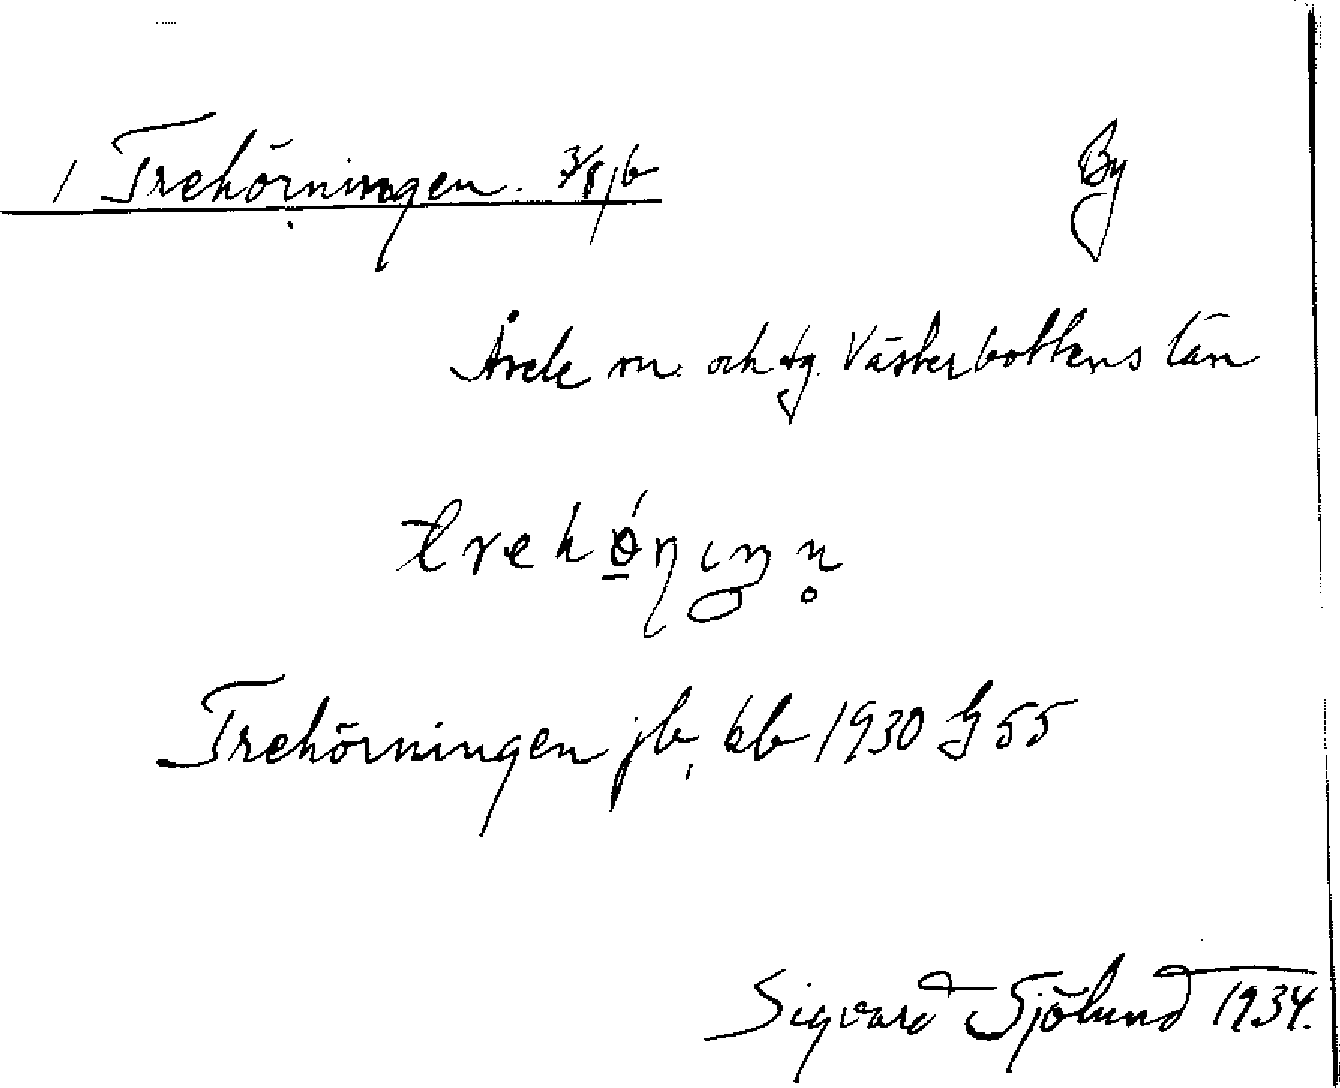 1 Trehörningen. 3/8 jb By
Åsele sn. och tg. Västerbottens län
trehö́ɳɩŋn̥
Trehörningen jb, kb 1930 G 55
Sigvard Sjölund 1934.